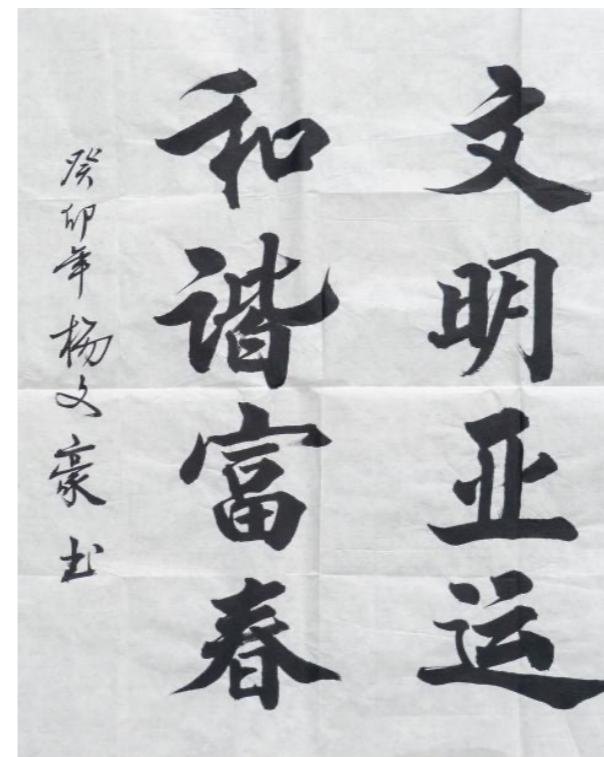 文明亚运
和谐富春
癸卯年杨文豪书